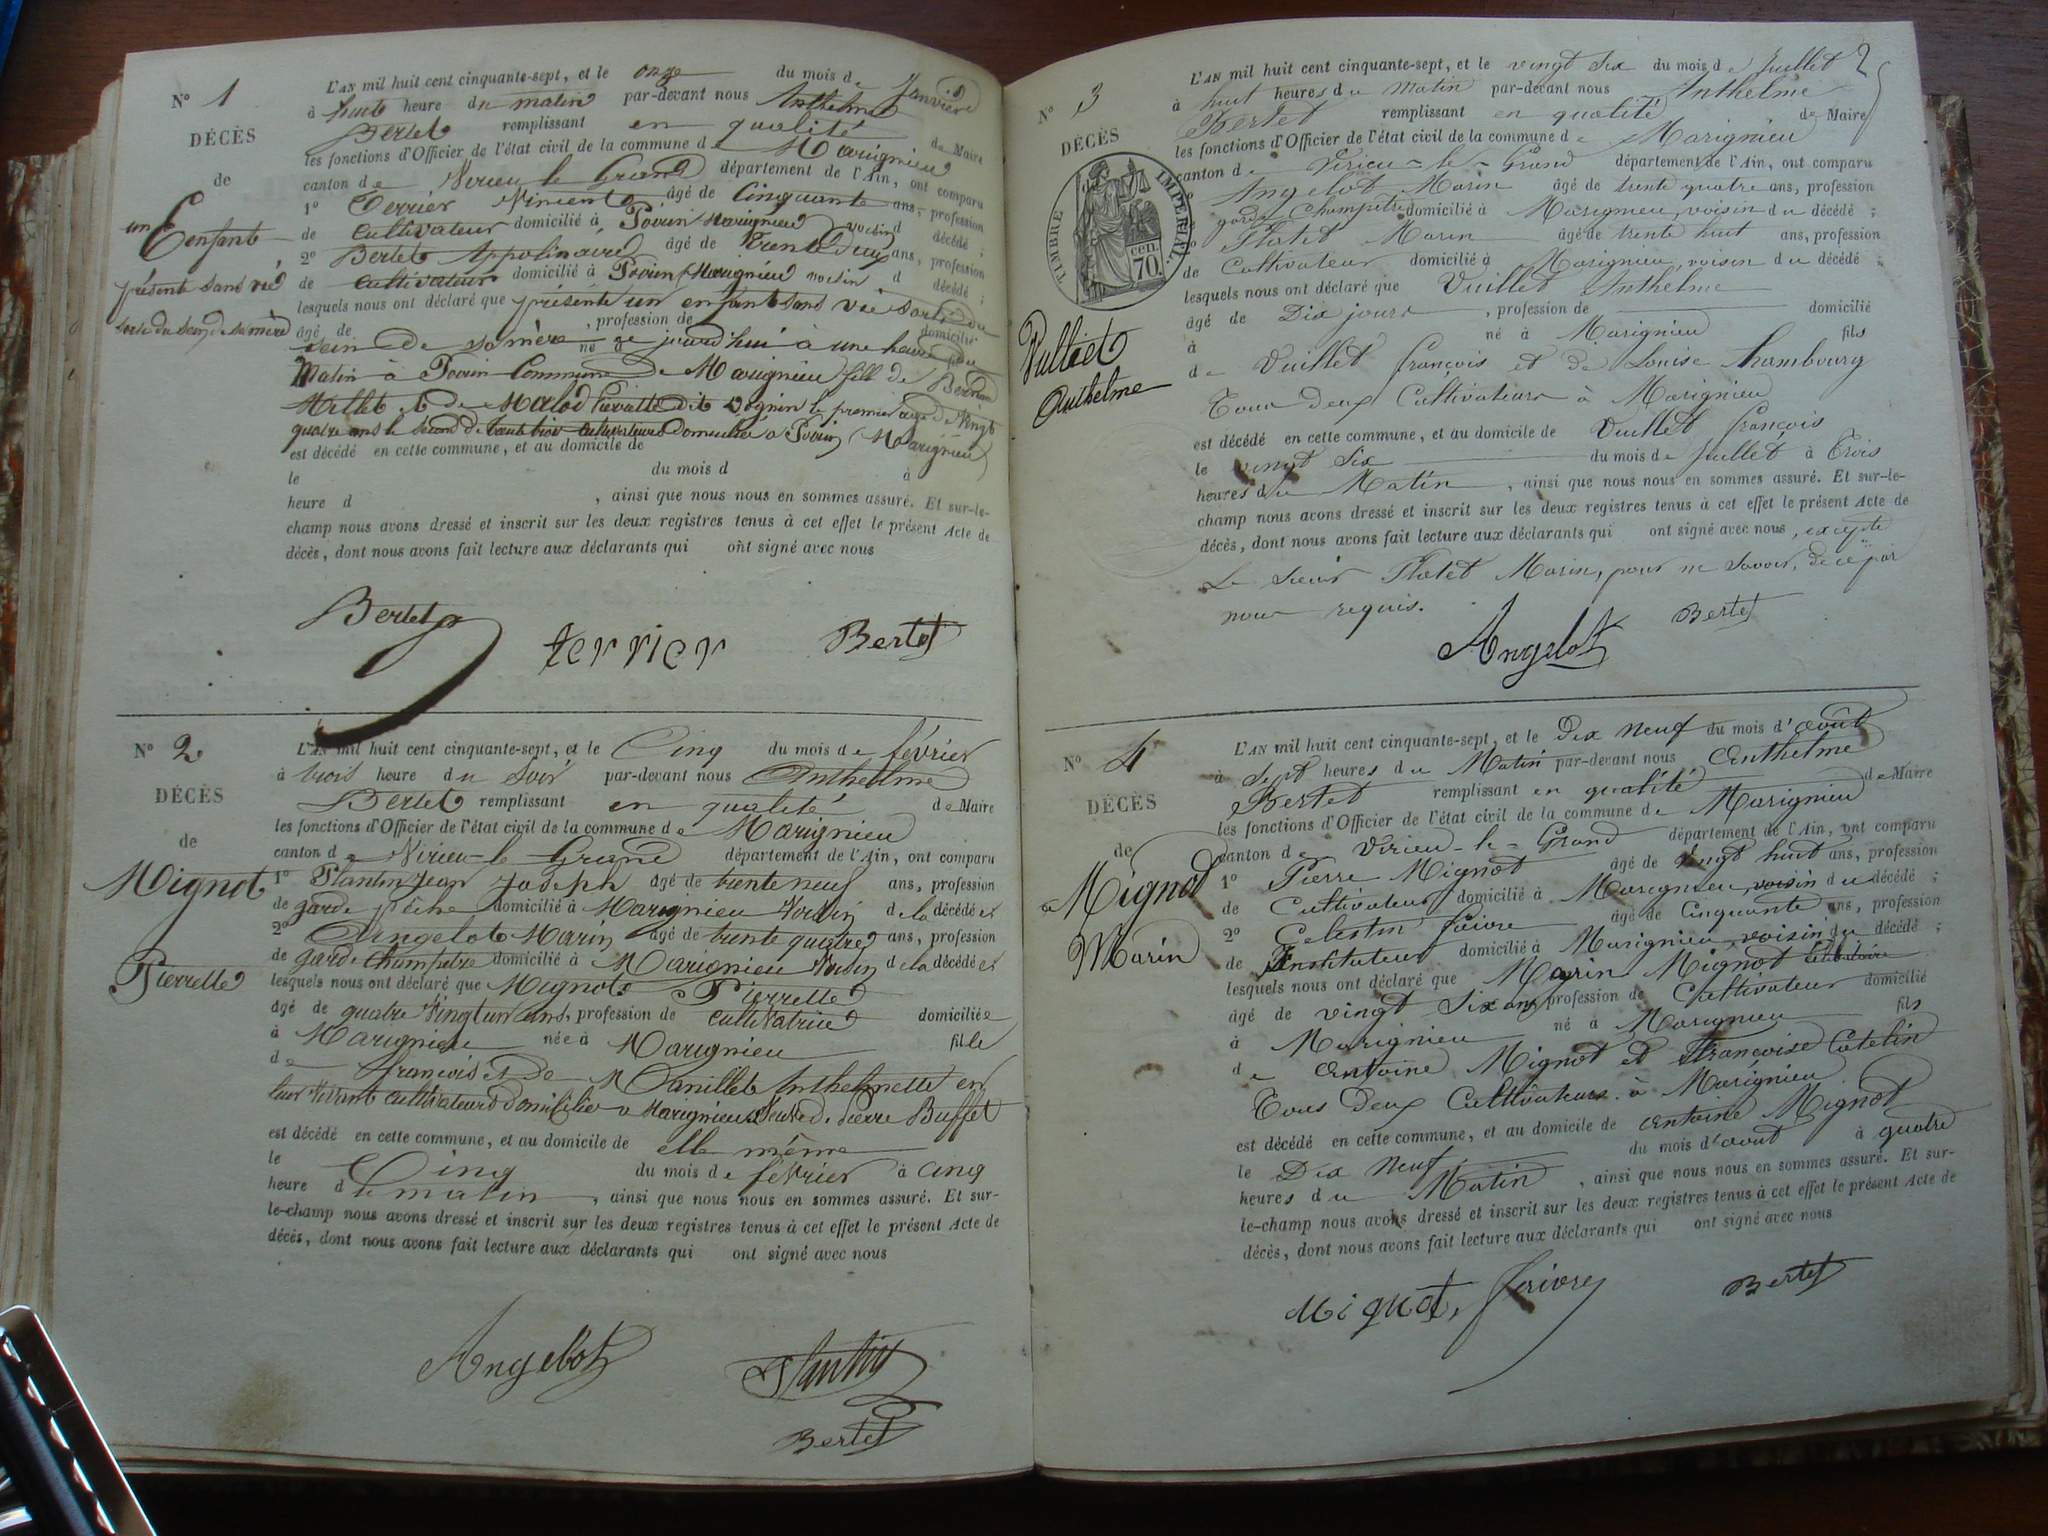 N° 1
DÉCÈS
de
un Enfant
présenté sans vie
sorti du sein de sa mère
L'AN mil huit cent cinquante-sept, et le onze du mois de Janvier
à huit heure du matin par-devant nous Anthelme
Bertet remplissant en qualité de Maire
les fonctions d'Officier de l'état civil de la commune de Marignieu
canton de Virieu le Grand département de l'Ain, ont comparu
1° Terrier Vincent âgé de Cinquante ans, profession
de cultivateur domicilié à Poirin Marignieu voisin d décédé ;
2° Bertet Appolinaire âgé de Trente deux ans, profession
de cultivateur domicilié à Poirin Marignieu voisin d décédé ;
lesquels nous ont déclaré que présenté un enfant sans vie sorti du
âgé de , profession de domicilié
sein de sa mère né à ce jourd'hui à une heure du
Matin à Poirin Commune de Marignieu fils de
Millet et de dit le premier agé de Vingt
quatre ans le second de trente trois cultivateurs Domicilié à Poirin (Marignieu)
est décédé en cette commune, et au domicile de
le du mois d à
heure d , ainsi que nous nous en sommes assuré. Et sur-le-
champ nous avons dressé et inscrit sur les deux registres tenus à cet effet le présent Acte de
décès, dont nous avons fait lecture aux déclarants qui ont signé avec nous
Bertet terrier Bertet
N° 2
DÉCÈS
de
Mignot
Pierrette
L'AN mil huit cent cinquante-sept, et le Cinq du mois de février
à trois heure du Soir par-devant nous Anthelme
Bertet remplissant en qualité de Maire
les fonctions d'Officier de l'état civil de la commune de Marignieu
canton de Virieu-le-Grand département de l'Ain, ont comparu
1° Plantin Jean Joseph âgé de trente neuf ans, profession
de garde pêche domicilié à Marignieu Voisin de la décédée
2° Angelot Marin âgé de trente quatre ans, profession
de garde champetre domicilié à Marignieu Voisin de la décédée
lesquels nous ont déclaré que Mignot Pierrette
âgé de quatre Vingt un ans, profession de cultivatrice domiciliée
à Marignieu née à Marignieu fille
de françois et de Anthelmette en
leur Vivant cultivateurs domicilié a Marignieu Veuve de Pierre Buffet
est décédé en cette commune, et au domicile de elle même
le Cinq du mois de février à cinq
heure du matin , ainsi que nous nous en sommes assuré. Et sur-
le-champ nous avons dressé et inscrit sur les deux registres tenus à cet effet le présent Acte de
décès, dont nous avons fait lecture aux déclarants qui ont signé avec nous
Angelot Plantin
Bertet
2
N° 3
DÉCÈS
TIMBRE IMPÉRIAL
70 cen.
Vulliet
Anthelme
L'AN mil huit cent cinquante-sept, et le vingt Six du mois de Juillet
à huit heures du Matin par-devant nous Anthelme
Bertet remplissant en qualité de Maire
les fonctions d'Officier de l'état civil de la commune de Marignieu
canton de Virieu-le-Grand département de l'Ain, ont comparu
1° Angelot Marin âgé de trente quatre ans, profession
garde Champêtre domicilié à Marignieu, voisin du décédé ;
2° Platet Marin âgé de trente huit ans, profession
de Cultivateur domicilié à Marignieu, voisin du décédé ;
lesquels nous ont déclaré que Vuillet Anthelme
âgé de Dix jours , profession de domicilié
à né à Marignieu fils
de Vuillet françois et de Louise Chambourg
Tous deux Cultivateurs à Marignieu
est décédé en cette commune, et au domicile de Vuillet françois
le vingt Six du mois de Juillet à Trois
heures du Matin , ainsi que nous nous en sommes assuré. Et sur-le-
champ nous avons dressé et inscrit sur les deux registres tenus à cet effet le présent Acte de
décès, dont nous avons fait lecture aux déclarants qui ont signé avec nous, excepté
Le Sieur Platet Marin, pour ne Savoir, de ce par
nous requis.
Angelot Bertet
N° 4
DÉCÈS
de
Mignot
Marin
L'AN mil huit cent cinquante-sept, et le Dix Neuf du mois d'août
à Sept heures du Matin par-devant nous Anthelme
Bertet remplissant en qualité de Maire
les fonctions d'Officier de l'état civil de la commune de Marignieu
canton de Virieu-le-Grand département de l'Ain, ont comparu
1° Pierre Mignot âgé de vingt huit ans, profession
de Cultivateur domicilié à Marignieu, voisin du décédé ;
2° Celestin âgé de Cinquante ans, profession
de Instituteur domicilié à Marignieu, voisin du décédé ;
lesquels nous ont déclaré que Marin Mignot célibataire
âgé de vingt Six ans profession de Cultivateur domicilié
à Marignieu né à Marignieu fils
de Antoine Mignot et Françoise Catelin
Tous Deux Cultivateurs à Marignieu
est décédé en cette commune, et au domicile de Antoine Mignot
le Dix Neuf du mois d'aout à quatre
heures du Matin , ainsi que nous nous en sommes assuré. Et sur-
le-champ nous avons dressé et inscrit sur les deux registres tenus à cet effet le présent Acte de
décès, dont nous avons fait lecture aux déclarants qui ont signé avec nous
Mignot, Bertet